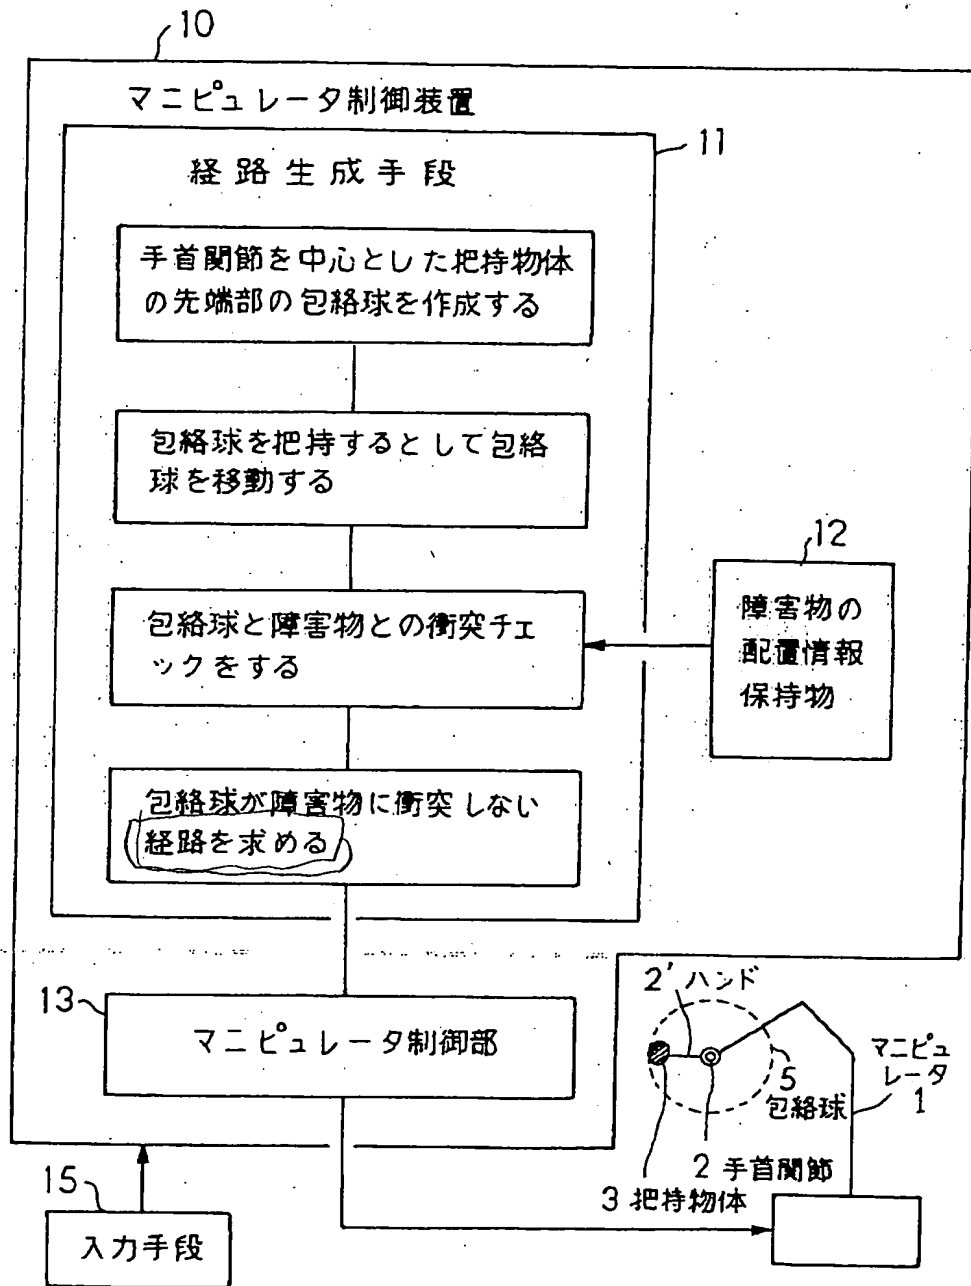 10
マニピュレータ制御装置
11
経路生成手段
手首関節を中心とした把持物体
の先端部の包絡球を作成する
包絡球を把持するとして包絡
球を移動する
12
包絡球と障害物との衝突チェ
ックをする
障害物の
配置情報
保持物
包絡球が障害物に衝突しない
経路を求める
13
マニピュレータ制御部
2' ハンド
5
包絡球
マニピュ
レータ
1
2 手首関節
3 把持物体
15
入力手段